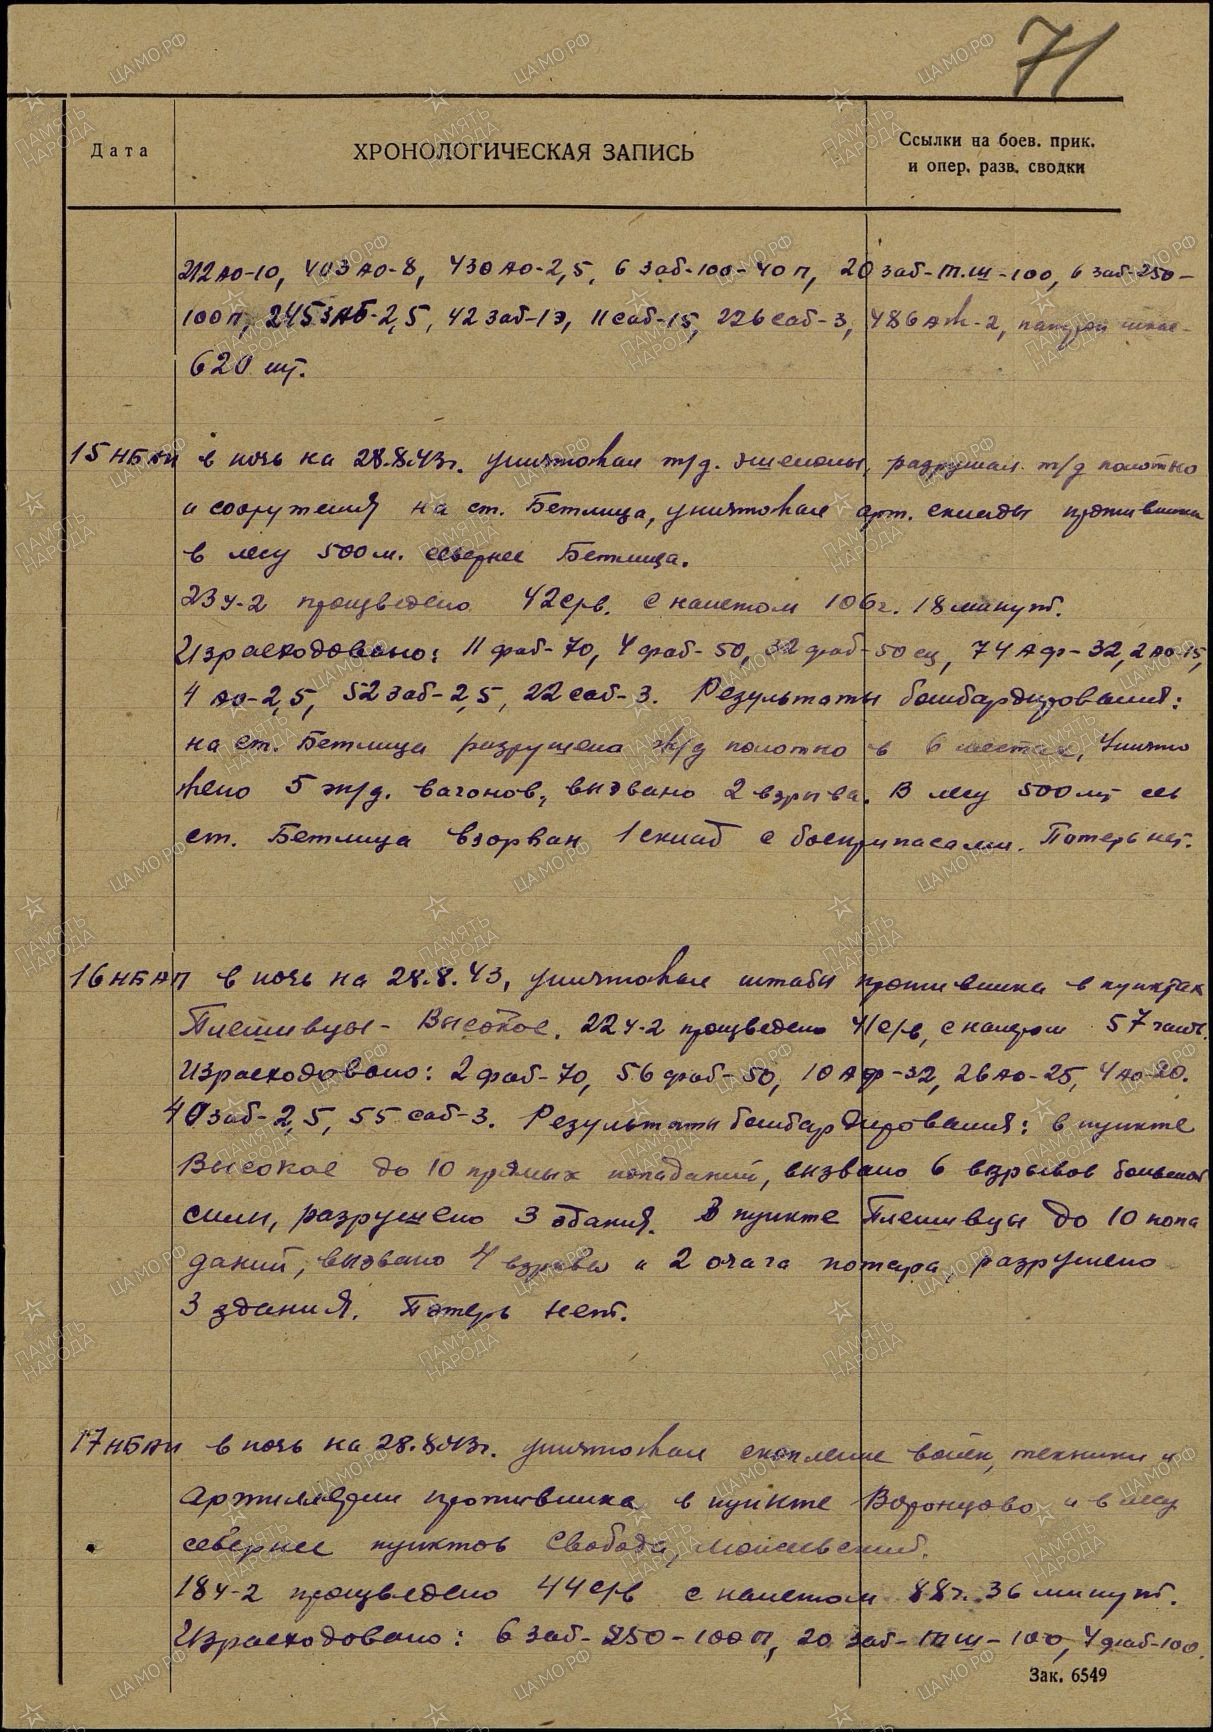 71
Дата
ХРОНОЛОГИЧЕСКАЯ ЗАПИСЬ
Ссылки на боев. прик.
и опер. разв. сводки
212 АО-10, 403 АО-8, 430 АО-2,5, 6 заб-100-40п, 20 заб-тш-100, 6 заб-250-
100п, 245 ЗАБ-2,5, 42 заб-1э, 11 саб-15, 226 саб-3, 486 АЖ-2,
620 шт.
15 НБАП в ночь на 28.8.43г. уничтожал ж/д. эшелоны, разрушал ж/д полотно
и сооружения на ст. Бетлица, уничтожал арт. склады противника
в лесу 500 м. севернее Бетлица.
23 У-2 произведено 42 с/в. с налетом 106 г. 18 минут.
Израсходовано: 11 фаб-70, 4 фаб-50, 32 фаб-50 сц, 74 Аф-32, 2 АО-15,
4 АО-2,5, 52 заб-2,5, 22 саб-3. Результаты бомбардирования:
на ст. Бетлица разрушено ж/д полотно в 6 местах, Уничто
жено 5 ж/д. вагонов, вызвано 2 взрыва. В лесу 500 м, сев
ст. Бетлица взорван 1 склад с боеприпасами. Потерь нет.
16 НБАП в ночь на 28.8.43, уничтожал штабы противника в пунктах
Плешивцы - Высокое. 22 У-2 произведено 41 с/в, с налетом 57 час.
Израсходовано: 2 фаб-70, 56 фаб-50, 10 Аф-32, 26 АО-25, 4 АО-20.
40 заб-2,5, 55 саб-3. Результаты бомбардирования: в пункте
Высокое до 10 прямых попаданий, вызвано 6 взрывов большой
силы, разрушено 3 здания. В пункте Плешивцы до 10 попа
даний, вызвано 4 взрыва и 2 очага пожара, разрушено
3 здания. Потерь нет.
17 НБАП в ночь на 28.8.43г. уничтожал скопление войск, техники и
Артиллерии противника в пункте Воронцово и в лесу
севернее пунктов Свобода,
18 У-2 произведено 44 с/в с налетом 88 г. 36 минут.
Израсходовано: 6 заб-250-100п, 20 заб-тш-100, 4 фаб-100.
Зак. 6549